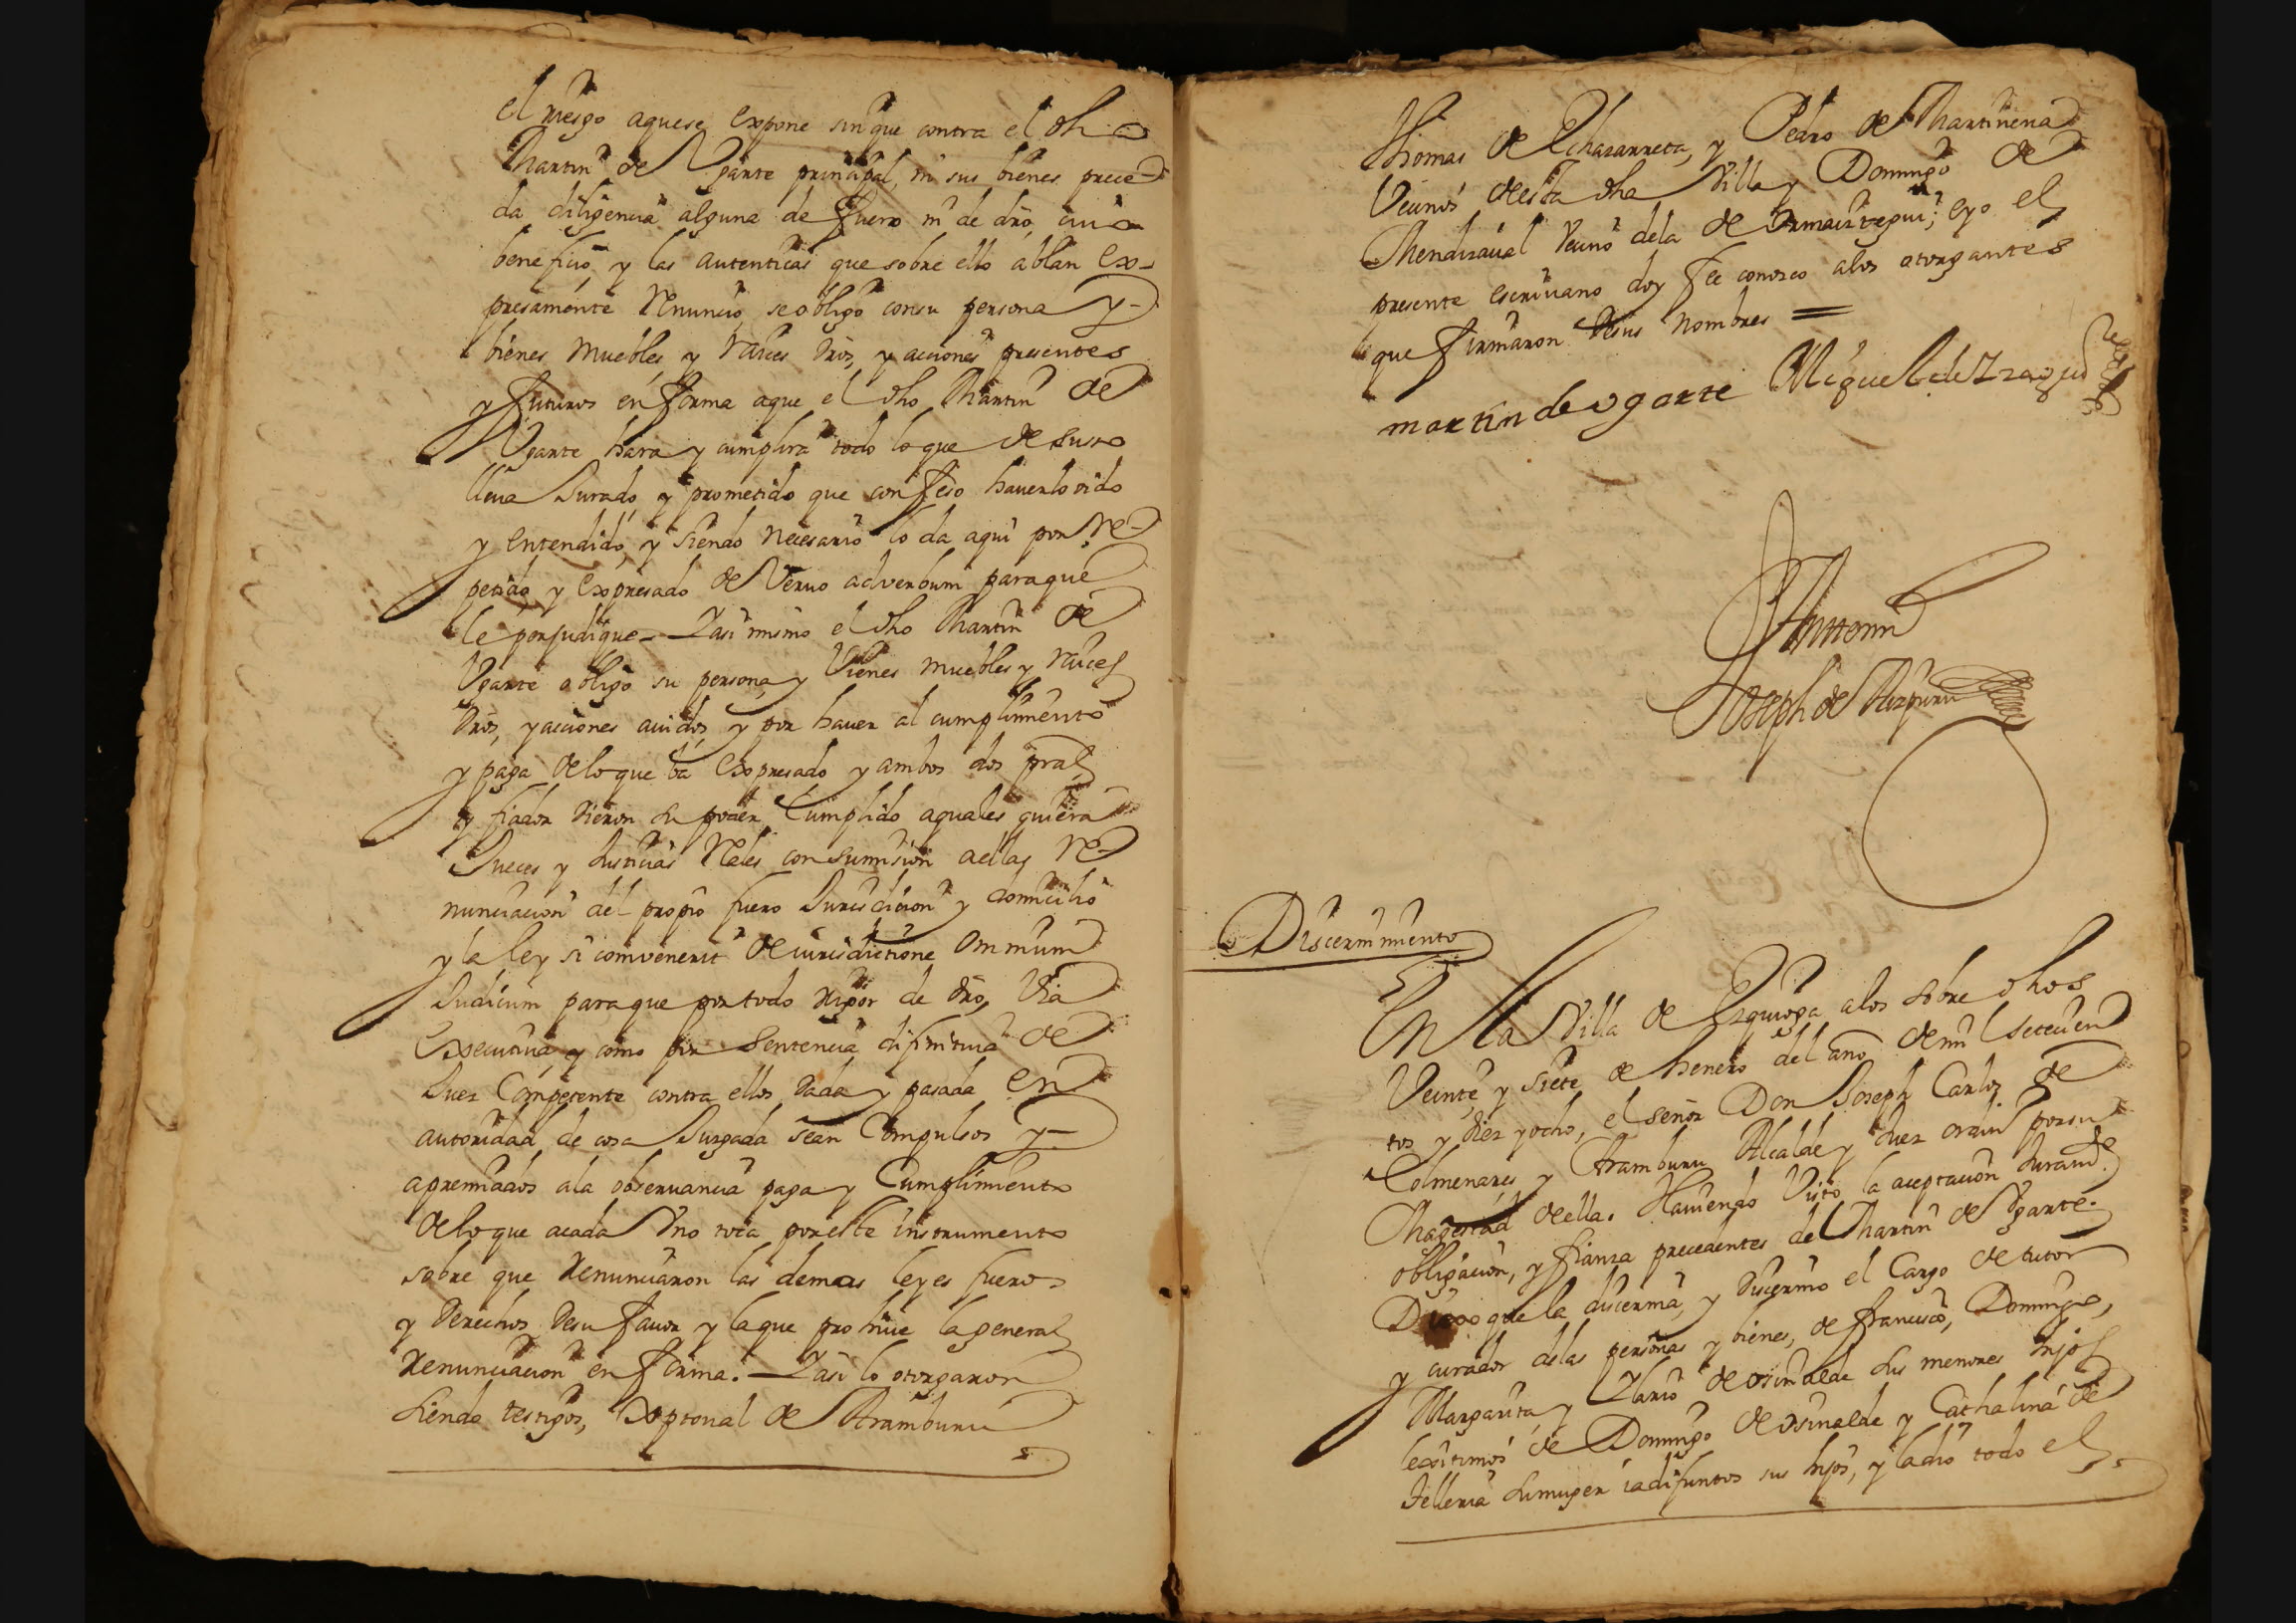 el riesgo aquese expone sin que contra el dho
Martin de Vgarte prinçipal, ni sus bienes prece-
da diligencia alguna de fuero ni de dro, cuio
beneficio y las autenticas que sobre ello ablan ex-
presamente Renuncio, se obligo con su persona y-
bienes muebles, y raices dros, y acciones presentes
y futuros en forma aque el dho Martin de
Vgarte hara y cumplira todo lo que de suso
lleua Jurado, y prometido que confeso hauerlo oido
y entendido, y siendo necesario lo da aqui por Re-
petido, y expresado de Veruo adverbum paraque
le perjudique - Y asi mismo el dho Martin de
Vgarte obligo su persona, y Vienes muebles y raices
dros, y acciones auidos, y por hauer al cumplimiento
y paga de lo que ba expresado, y ambos dos pral
y fiador dieron su poder Cumplido a quales quiera
Jueces y Justicias Rales con sumision aellas Re-
nunciacion del propio fuero Jurisdicion y domicilio
y la ley si convenerit de iurisdictione omnium
Judicum para que por todo rigor de dro, Via
Executiua, y como por sentencia difinitiua de
Juez Competente contra ellos dada y pasada en
autoridad de cosa Juzgada sean Compulsos y-
apremiados ala obseruancia paga y Cumplimiento
de lo que acada Vno toca por este instrumento
sobre que Renunciaron las demas leyes fueros
y derechos desu fauor y la que prohiue la general
Renunciacion en forma. - Y asi lo otorgaron
siendo testigos, Xptoual de Aramburu
Thomas de Echazarreta, y Pedro de Martinena
Vecinos desta dha Villa y Domingo de
Mendizaual Vecino dela de Ormaiztegui; e yo el
presente escriuano doy fee conozco alos otorgantes
que firmaron desus nombres =
martin de vgarte Miguel de
Ante mi
Joseph de Aizpuru
Discernimiento
En la Villa de Ezquioga alos sobre dhos
Veinte y siete de henero del año de mil setecien
tos y diez y ocho, el señor Don Joseph Carlos de
Colmenares y Aramburu Alcalde y Juez ordino por su
Magestad de ella. Hauiendo Visto la aceptacion Juramto
obligacion, y fianza precedentes del Martin de Vgarte.
Dixo que le discernia, y discernio el Cargo de tutor
y curador delas personas y bienes, de francisco, Domingo,
Margarita, y Ylario de osinalde sus menores hijos
lexitimos de Domingo de osinalde y Cathalina de
Telleria su muger ia difuntos sus hijos, y la dio todo el